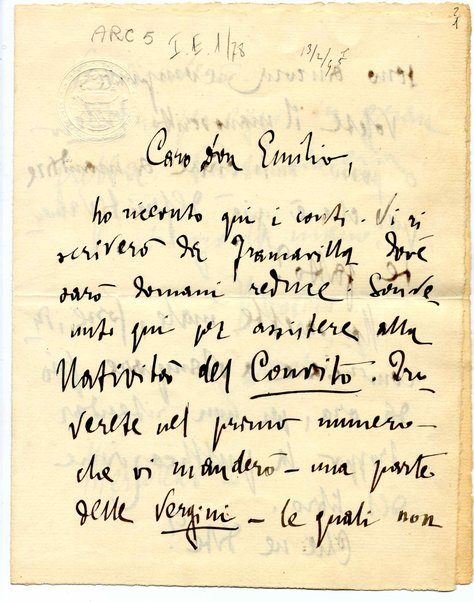 ARC 5 I.E. 1/78 13/2/95
Caro don Emilio,
ho ricevuto qui i conti. Vi ri
scriverò da Francavilla dove
sarò domani reduce. Son ve
nuto qui per assistere alla
Natività del Convito. Tro
verete nel primo numero –
che vi manderò – una parte
delle Vergini – le quali non